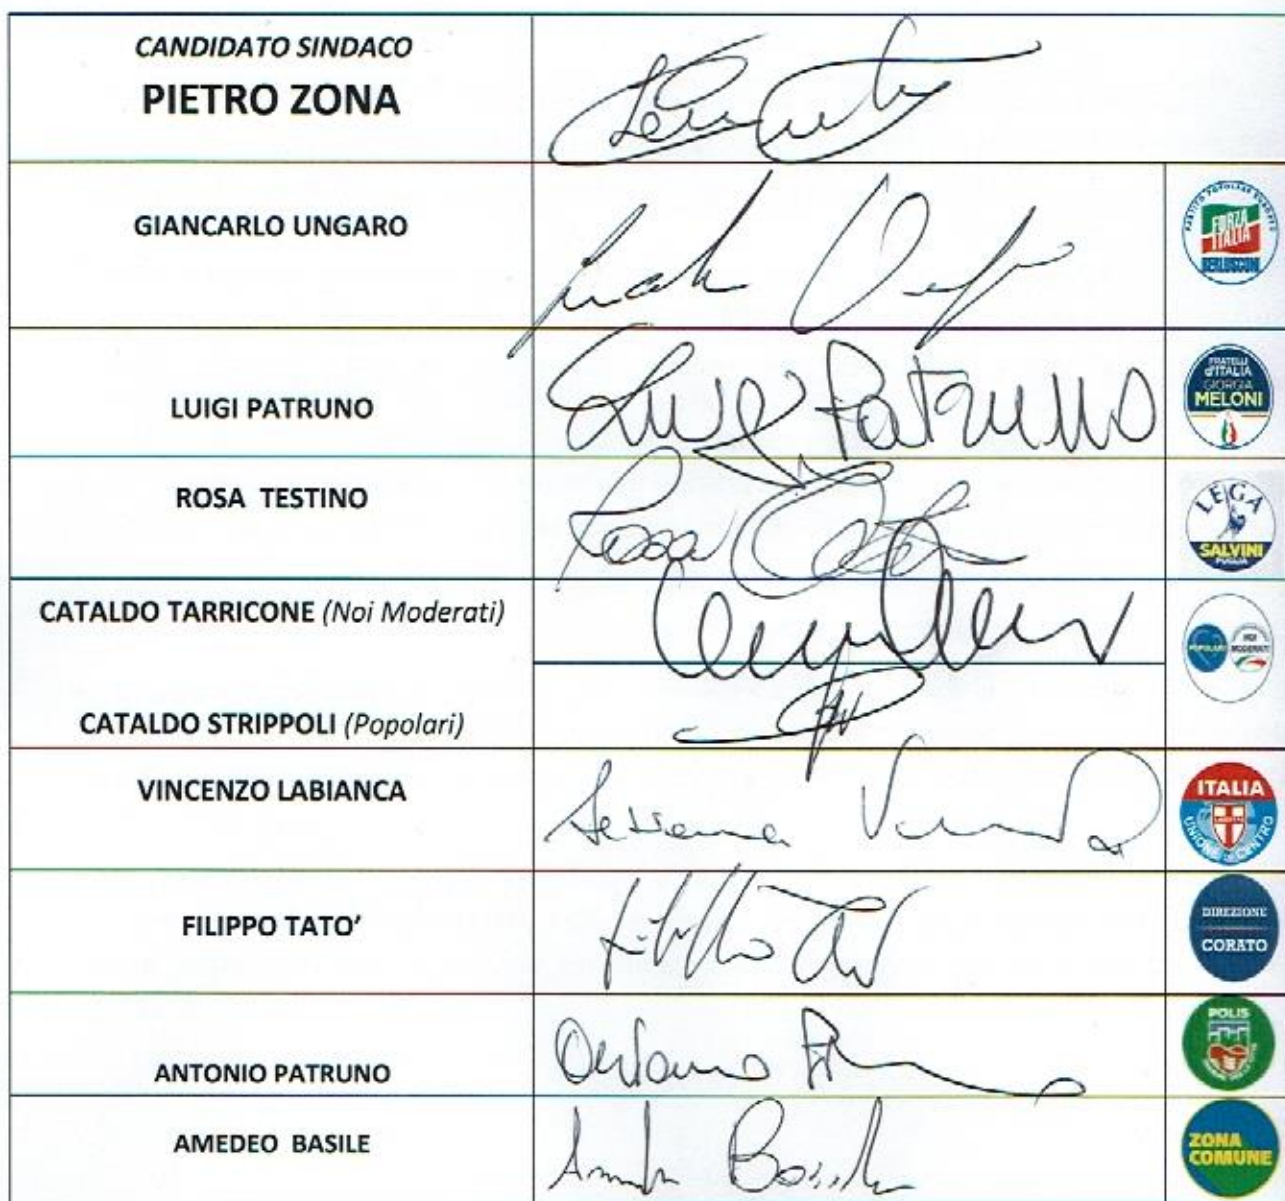 CANDIDATO SINDACO
PIETRO ZONA
GIANCARLO UNGARO
PARTITO POPOLARE EUROPEO
FORZA
ITALIA
BERLUSCONI
LUIGI PATRUNO
Luigi Patruno
FRATELLI
d'ITALIA
GIORGIA
MELONI
ROSA TESTINO
Rosa
LEGA
SALVINI
PUGLIA
CATALDO TARRICONE (Noi Moderati)
POPOLARI
NOI
MODERATI
CATALDO STRIPPOLI (Popolari)
VINCENZO LABIANCA
ITALIA
LIBERTAS
UNIONE DI CENTRO
FILIPPO TATO'
Filippo
DIREZIONE
CORATO
ANTONIO PATRUNO
Antonio
POLIS
AMEDEO BASILE
Basile
ZONA
COMUNE